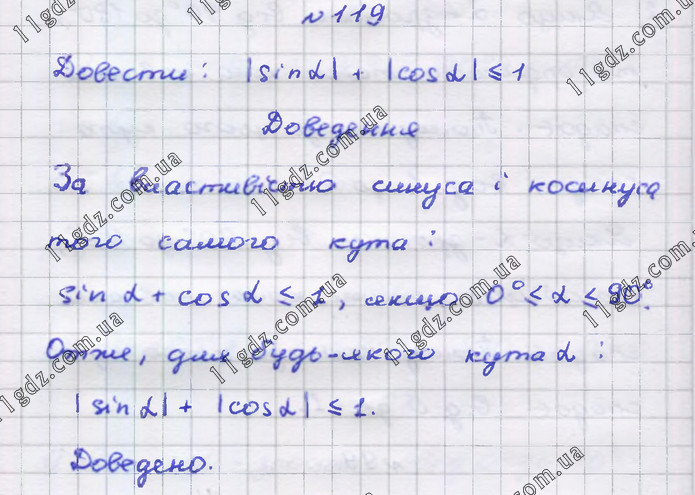 №119
Довести: |sin α| + |cos α| ≤ 1
Доведення
За властивістю синуса і косинуса
того самого кута:
sin α + cos α ≤ 1, якщо 0° ≤ α ≤ 90°.
Отже, для будь-якого кута α:
|sin α| + |cos α| ≤ 1.
Доведено.
11gdz.com.ua
11gdz.com.ua
11gdz.com.ua
11gdz.com.ua
11gdz.com.ua
11gdz.com.ua
11gdz.com.ua
11gdz.com.ua
11gdz.com.ua
11gdz.com.ua